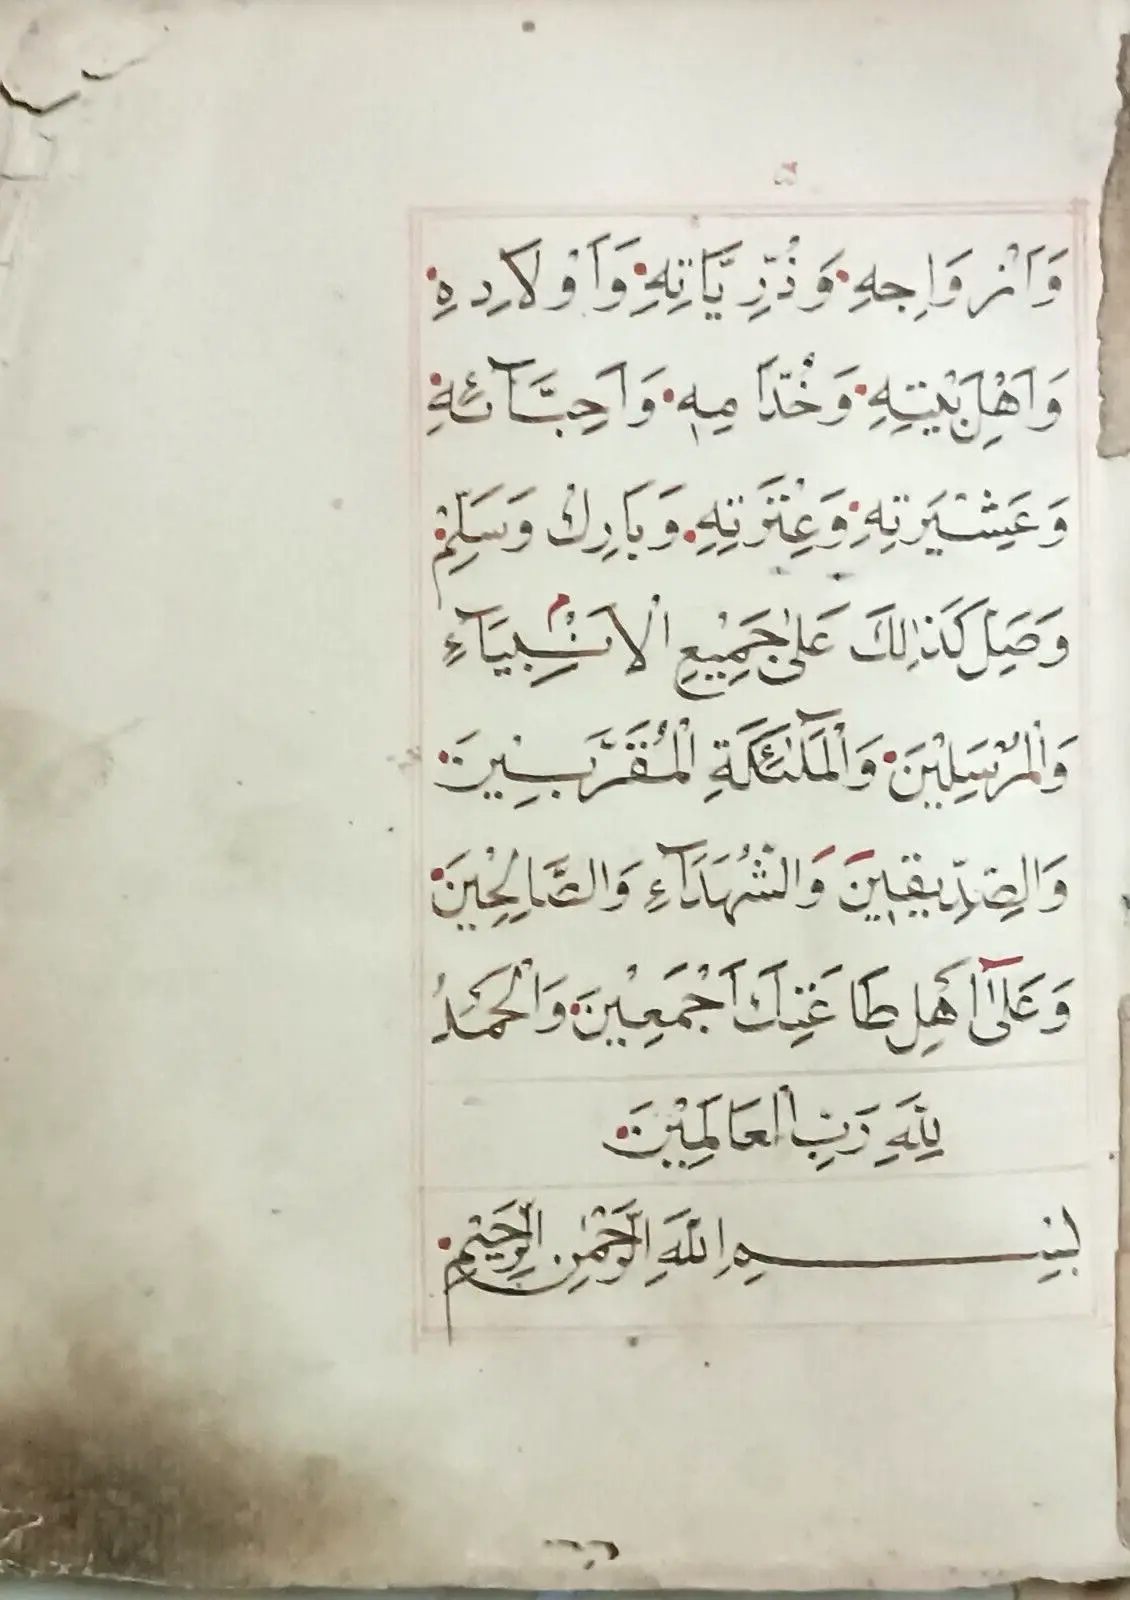 وَاَزْوَاجِهِ وَذُرِّيَّاتِهِ وَاَوْلَادِهِ
وَاَهْلِ بَيْتِهِ وَخُدَّامِهِ وَاَحِبَّآئِهِ
وَعَشِيْرَتِهِ وَعِتْرَتِهِ وَبَارِكْ وَسَلِّمْ
وَصَلِّ كَذٰلِكَ عَلٰى جَمِيْعِ الْاَنْۢبِيَآءِ
وَالْمُرْسَلِيْنَ وَالْمَلٰٓئِكَةِ الْمُقَرَّبِيْنَ
وَالصِّدِّيقِيْنَ وَالشُّهَدَآءِ وَالصَّالِحِيْنَ
وَعَلٰٓى اَهْلِ طَاعَتِكَ اَجْمَعِيْنَ وَالْحَمْدُ
لِلّٰهِ رَبِّ الْعَالَمِيْنَ
بِسْمِ اللّٰهِ الرَّحْمٰنِ الرَّحِيْمِ